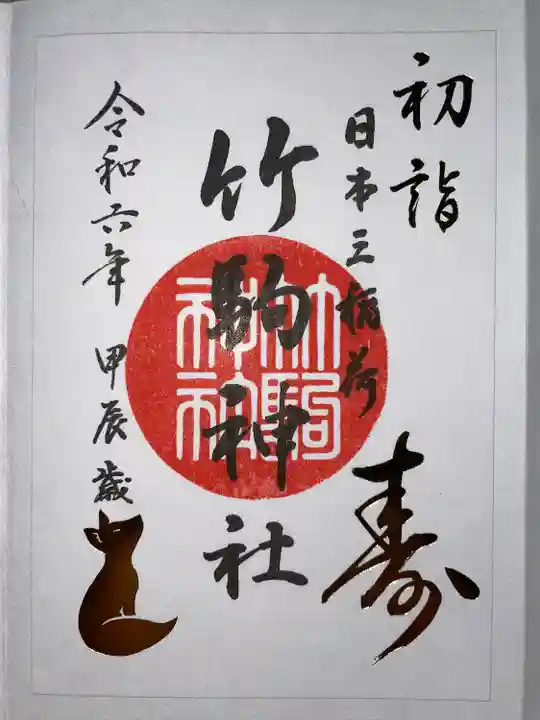 初詣
日本三稲荷
寿
竹駒神社
竹駒
神社
令和六年 甲辰歳